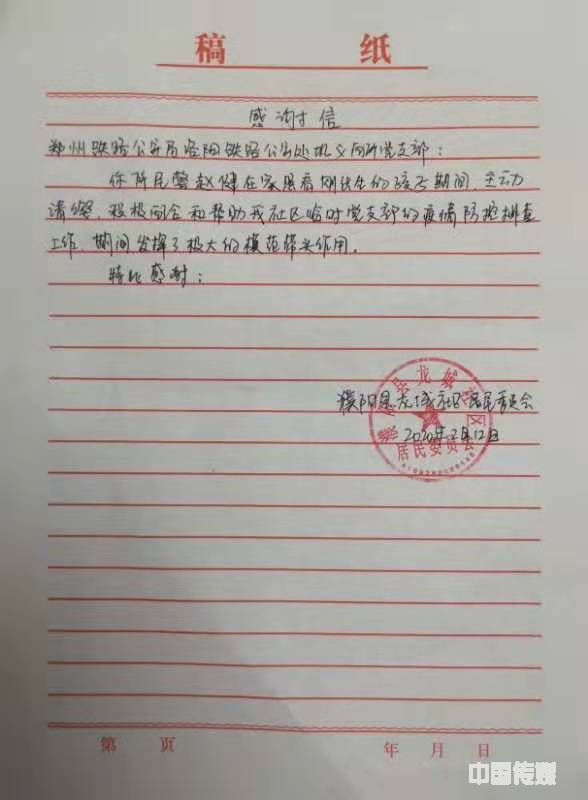 稿 纸
感谢信
郑州铁路公安局洛阳铁路公安处机义同所党支部：
你所民警赵健在家照看刚出生的孩子期间，主动
请缨，积极配合和帮助我社区临时党支部的疫情防控排查
工作，期间发挥了极大的模范带头作用。
特此感谢：
濮阳县龙城社区居民委员会
2020年2月12日
居民委员会
第 页 年 月 日
中国传媒